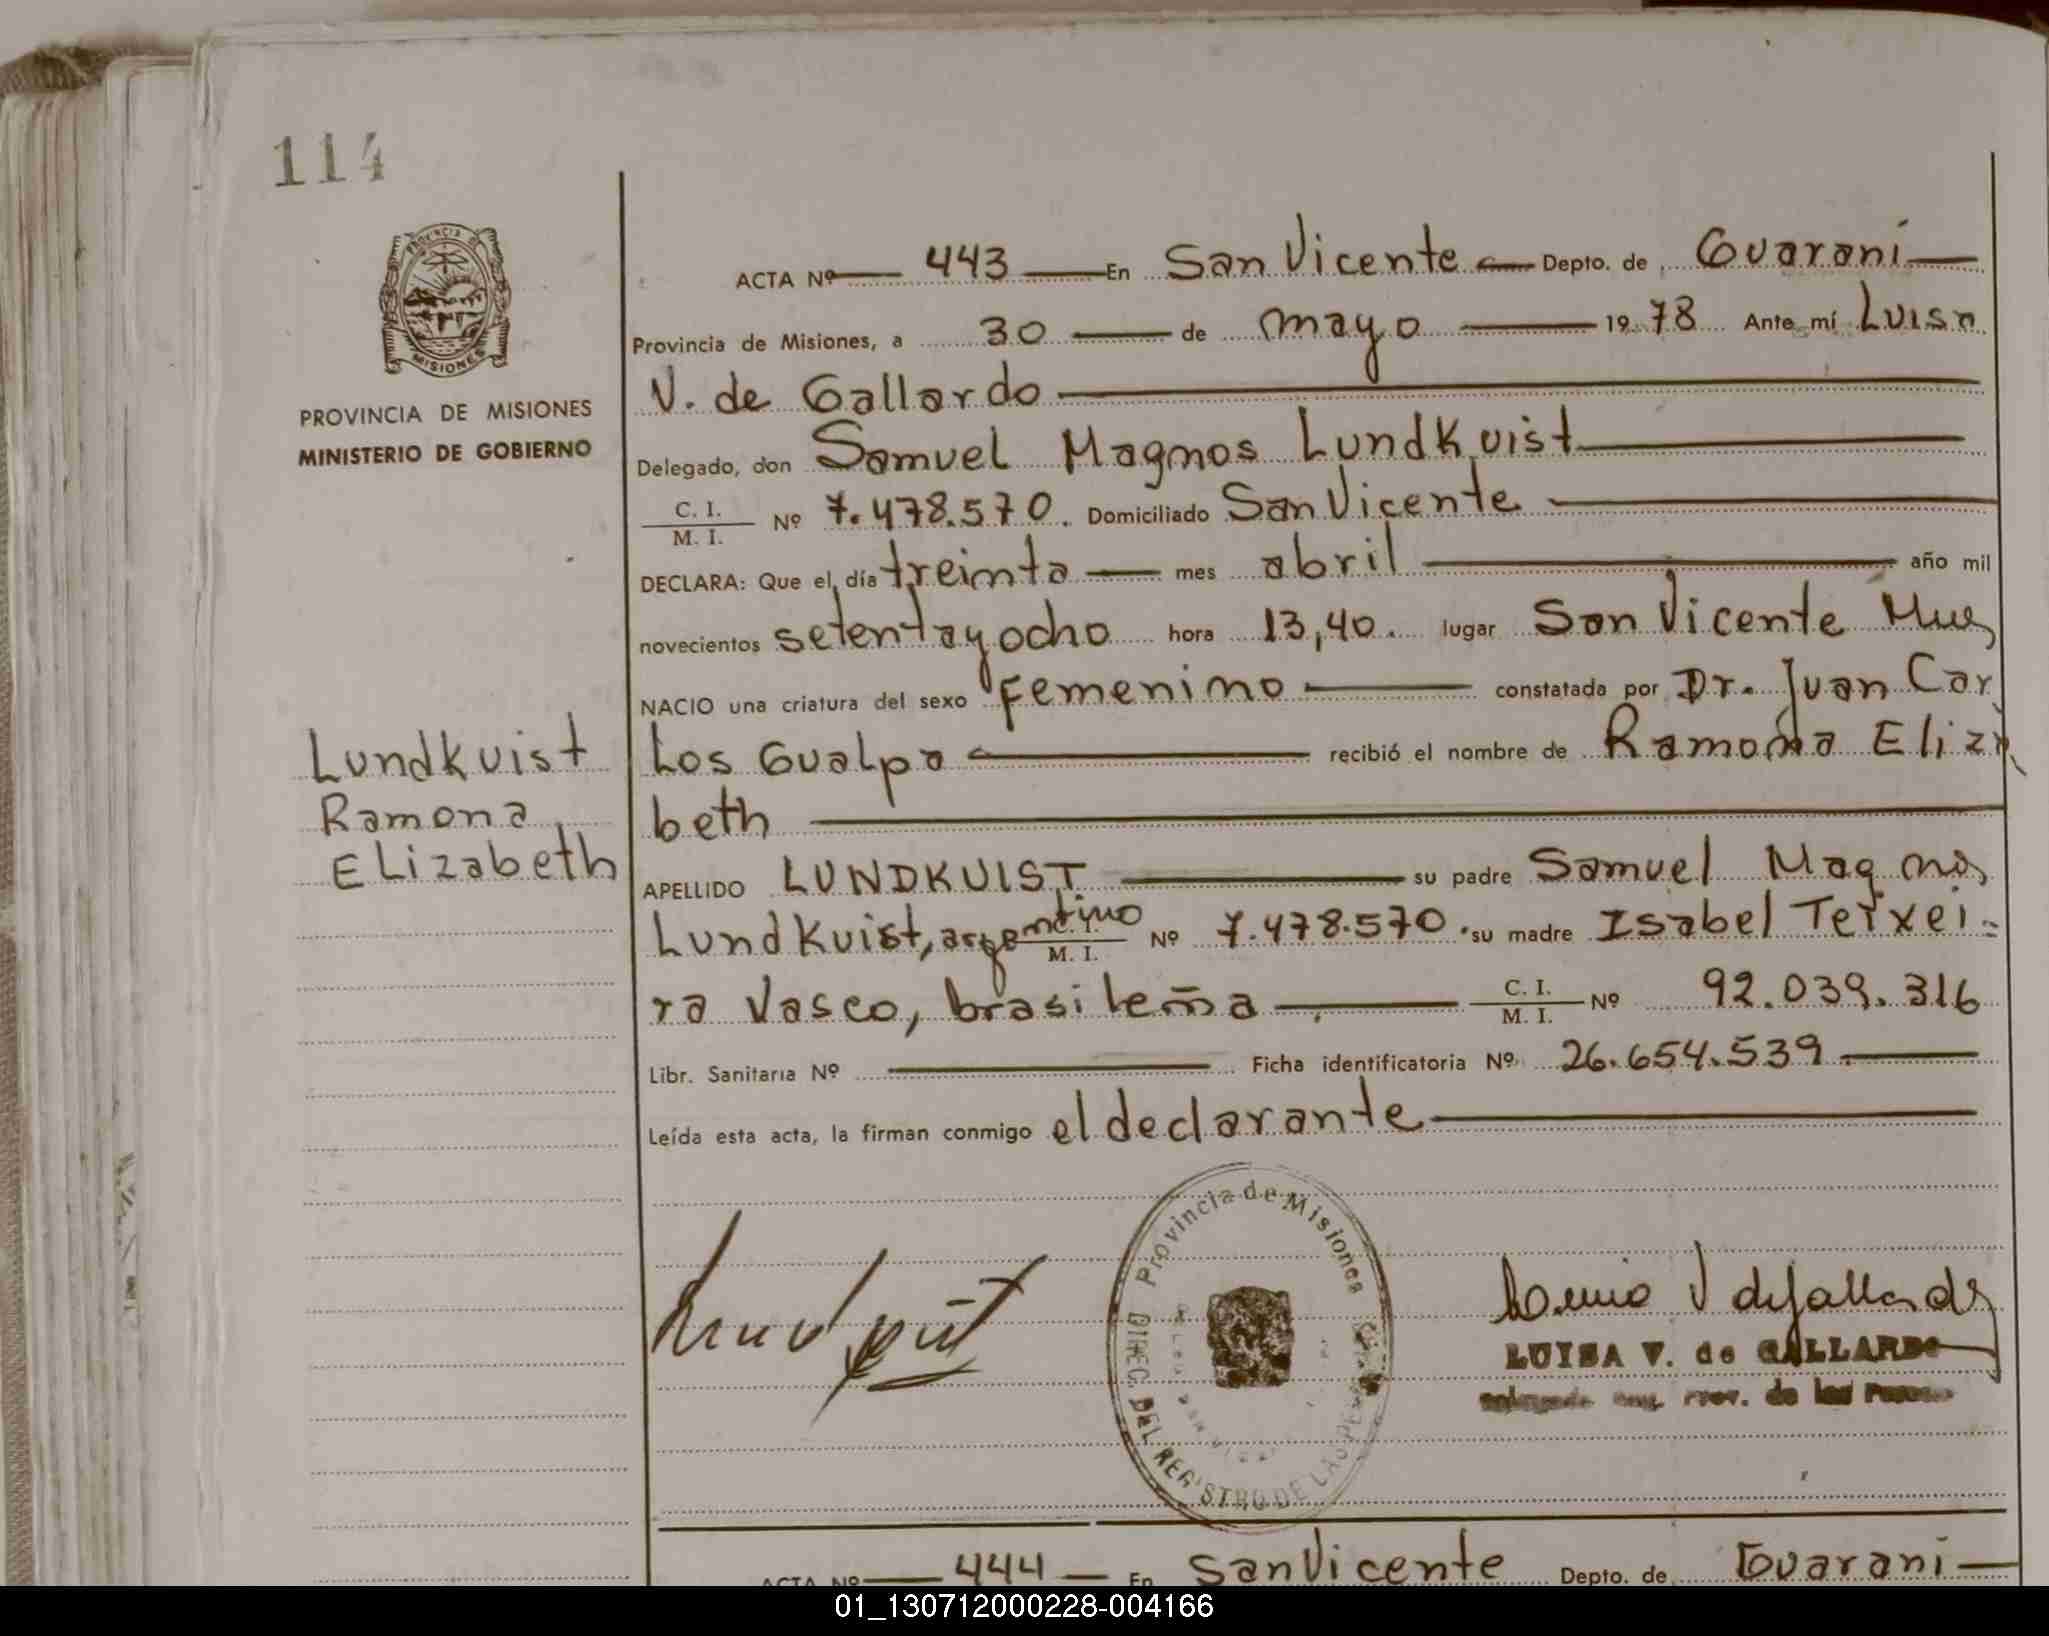 114
PROVINCIA DE
MISIONES
PROVINCIA DE MISIONES
MINISTERIO DE GOBIERNO
ACTA Nº 443 En San Vicente Depto. de Guaraní
Provincia de Misiones, a 30 de mayo 1978 Ante mí Luisa
V. de Gallardo
Delegado, don Samuel Magnos Lundkuist
C. I.
M. I. Nº 7.478.570. Domiciliado San Vicente
DECLARA: Que el día treinta mes abril año mil
novecientos setentayocho hora 13,40. lugar San Vicente
NACIO una criatura del sexo femenino constatada por Dr. Juan Car
los Gualpa recibió el nombre de Ramona Eliza
beth
Lundkuist
Ramona
Elizabeth
APELLIDO LUNDKUIST su padre Samuel Magnos
Lundkuist, argentino M. I. Nº 7.478.570. su madre Isabel Teixei=
ra Vasco, brasileña C. I.
M. I. Nº 92.039.316
Libr. Sanitaria Nº Ficha identificatoria Nº 26.654.539
Leída esta acta, la firman conmigo el declarante
Provincia de Misiones
DIREC. DEL REGISTRO DE LAS PE
LUISA V. de GALLARDO
Prov. de las
ACTA Nº 444 En San Vicente Depto. de Guaraní
01_130712000228-004166